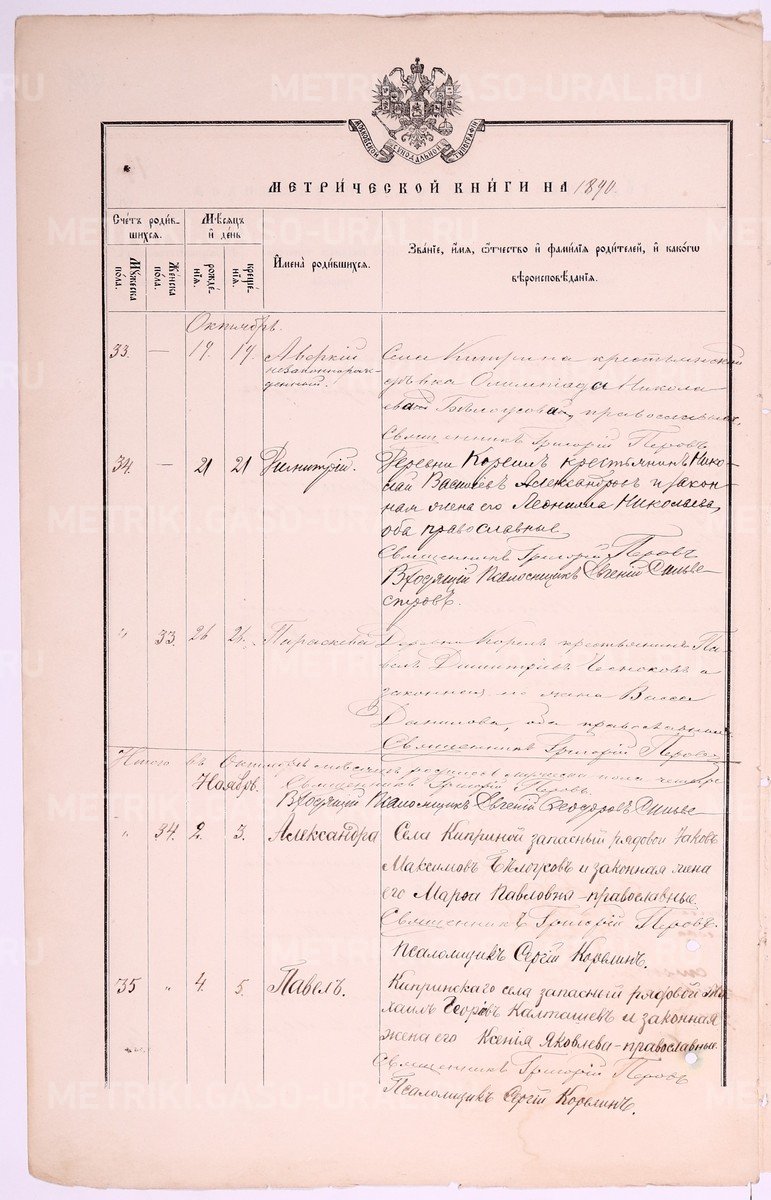 МОСКОВСКОЙ СѴНОДАЛЬНОЙ ТИПОГРАФІИ
МЕТРИ́ЧЕСКОЙ КНИ́ГИ НА 1890.
Сче́тъ роди́в-
шихся.
Му́жеска
по́ла.
Же́нска
по́ла.
Мѣ́сяцъ
и҆ де́нь
рожде́-
нїя.
креще́-
нїя.
И҆мена̀ роди́вшихся.
Зва́нїе, и҆́мя, ѻ҆́тчество и҆ фами́лїя роди́телей, и҆ како́гѡ
вѣроисповѣ́данїя.
Октябрь.
33. — 19. 19. Аверкій
незаконнорож-
денный.
Села Киприна крестьянская
дѣвка Олимпіада Никола
ева Бѣлоусова, православная.
Священникъ Григорій Перовъ
34. — 21 21 Димитрій.
Деревни Корелъ крестьянинъ Нико-
лай Васильевъ Александровъ и закон-
ная жена его Леонилла Николаева,
оба православные
Священникъ Григорій Перовъ
В/должн. Псаломщикъ Евгеній Сильве-
стровъ.
" 33. 26 26. Параскева
Деревни Корелъ крестьянинъ Па-
велъ Димитріевъ Чесноковъ и
законная его жена Васса
Данилова, оба православные
Священникъ Григорій Перовъ
Итого въ Октябрѣ мѣсяцѣ родилось мужеска пола четыре
Священникъ Григорій Перовъ
Ноябрь.
В/должн. Псаломщикъ Евгеній Ѳеодоровъ Сильве-
" 34. 2. 3. Александра
Села Киприной запасный рядовой Іаковъ
Максимовъ Бѣлоусовъ и законная жена
его Марѳа Павловна - православные.
Священникъ Григорій Перовъ.
Псаломщикъ Сергій Корелинъ.
35 " 4. 5. Павелъ.
Кипринскаго села запасный рядовой Ми-
хаилъ Георгіевъ Калташев и законная
жена его Ксенія Яковлева - православные.
Священникъ Григорій Перовъ
Псаломщикъ Сергій Корелинъ.
METRIKI.GASO-URAL.RU